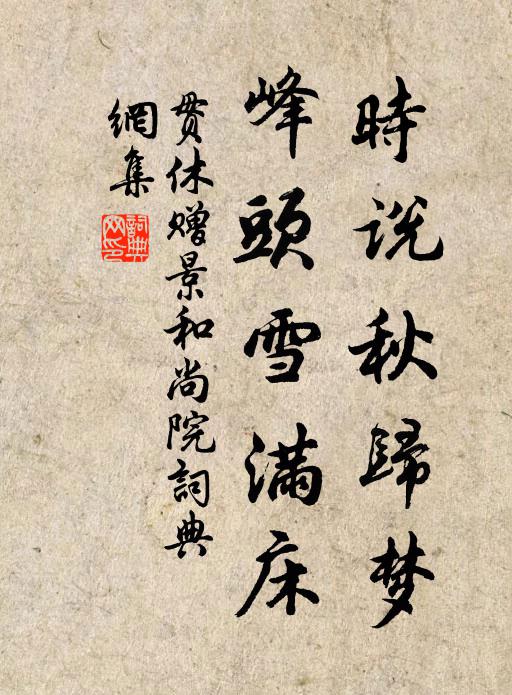 時説秋歸梦
峰頭雪滿床
贯休赠景和尚院詞典
網集
詞典網印